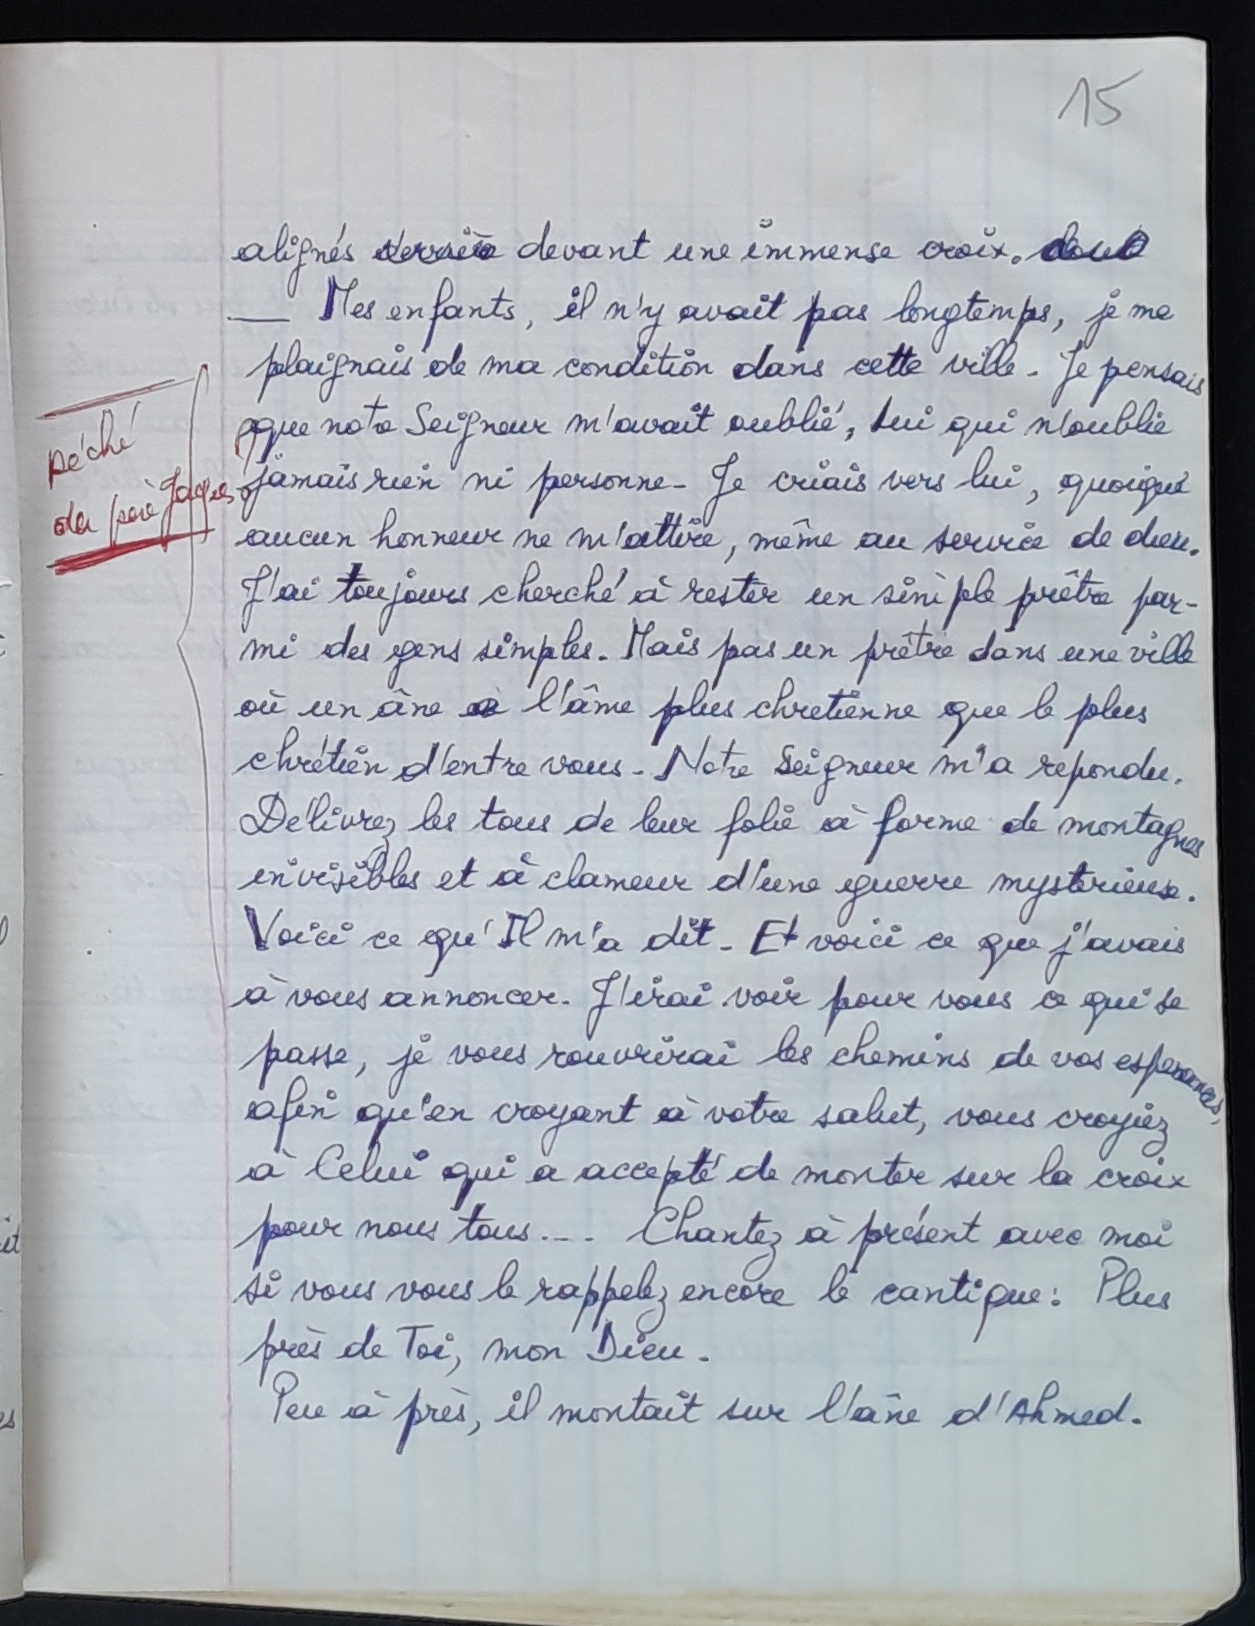 15
alignés derrière devant une immense croix. dont
— Mes enfants, il n'y avait pas longtemps, je me
plaignais de ma condition dans cette ville. Je pensais
que notre Seigneur m'avait oublié, Lui qui n'oublie
jamais rien ni personne. Je criais vers lui, quoique
aucun honneur ne m'attire, même au service de dieu.
J'ai toujours cherché à rester un simple prêtre par-
mi des gens simples. Mais pas un prêtre dans une ville
où un âne a l'âme plus chretienne que le plus
chrétien d'entre vous. Notre Seigneur m'a repondu.
Délivrez les tous de leur folie à forme de montagnes
invisibles et à clameur d'une guerre mysterieuse.
Voici ce qu'Il m'a dit. Et voici ce que j'avais
à vous annoncer. J'irai voir pour vous ce qui se
passe, je vous rouvrirai les chemins de vos esperances,
afin qu'en croyant à votre salut, vous croyiez
à Celui qui a accepté de monter sur la croix
pour nous tous... Chantez à présent avec moi
si vous vous le rappelez encore le cantique: Plus
près de Toi, mon Dieu.
Peu à près, il montait sur l'âne d'Ahmed.
péché
du père Jacques